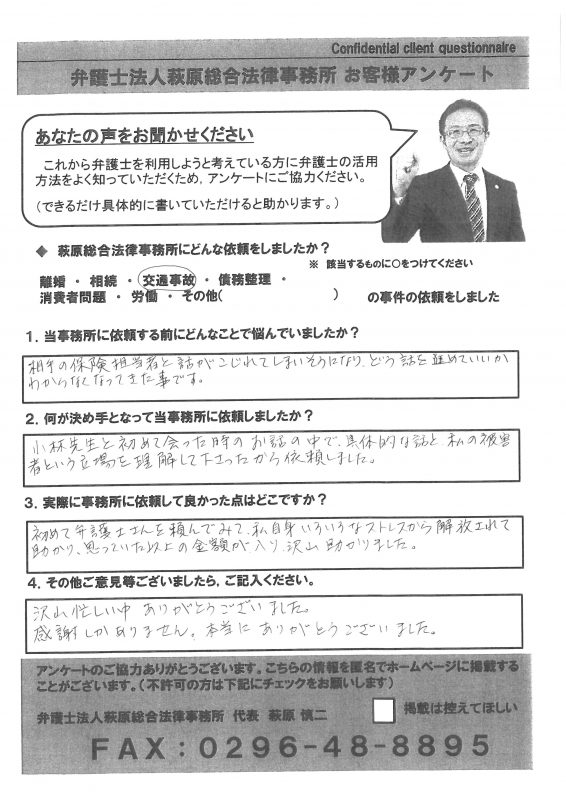 Confidential client questionnaire
弁護士法人萩原総合法律事務所 お客様アンケート
あなたの声をお聞かせください
これから弁護士を利用しようと考えている方に弁護士の活用
方法をよく知っていただくため，アンケートにご協力ください。
（できるだけ具体的に書いていただけると助かります。）
◆ 萩原総合法律事務所にどんな依頼をしましたか？
※ 該当するものに○をつけてください
離婚 ・ 相続 ・ 交通事故 ・ 債務整理 ・
消費者問題 ・ 労働 ・ その他( ) の事件の依頼をしました
1．当事務所に依頼する前にどんなことで悩んでいましたか？
相手の保険担当者と話がこじれてしまいそうになり、どう話を進めていいか
わからなくなってきた事です。
2．何が決め手となって当事務所に依頼しましたか？
小林先生と初めて会った時のお話の中で、具体的な話と、私の被害
者という立場を理解して下さったから依頼しました。
3．実際に事務所に依頼して良かった点はどこですか？
初めて弁護士さんを頼んでみて、私自身いろいろなストレスから解放されて
助かり、思っていた以上の金額が入り、沢山助かりました。
4．その他ご意見等ございましたら，ご記入ください。
沢山忙しい中 ありがとうございました。
感謝しかありません。本当に ありがとうございました。
アンケートのご協力ありがとうございます。こちらの情報を匿名でホームページに掲載する
ことがございます。（不許可の方は下記にチェックをお願いします）
弁護士法人萩原総合法律事務所 代表 萩原 慎二
掲載は控えてほしい
FAX：0296-48-8895